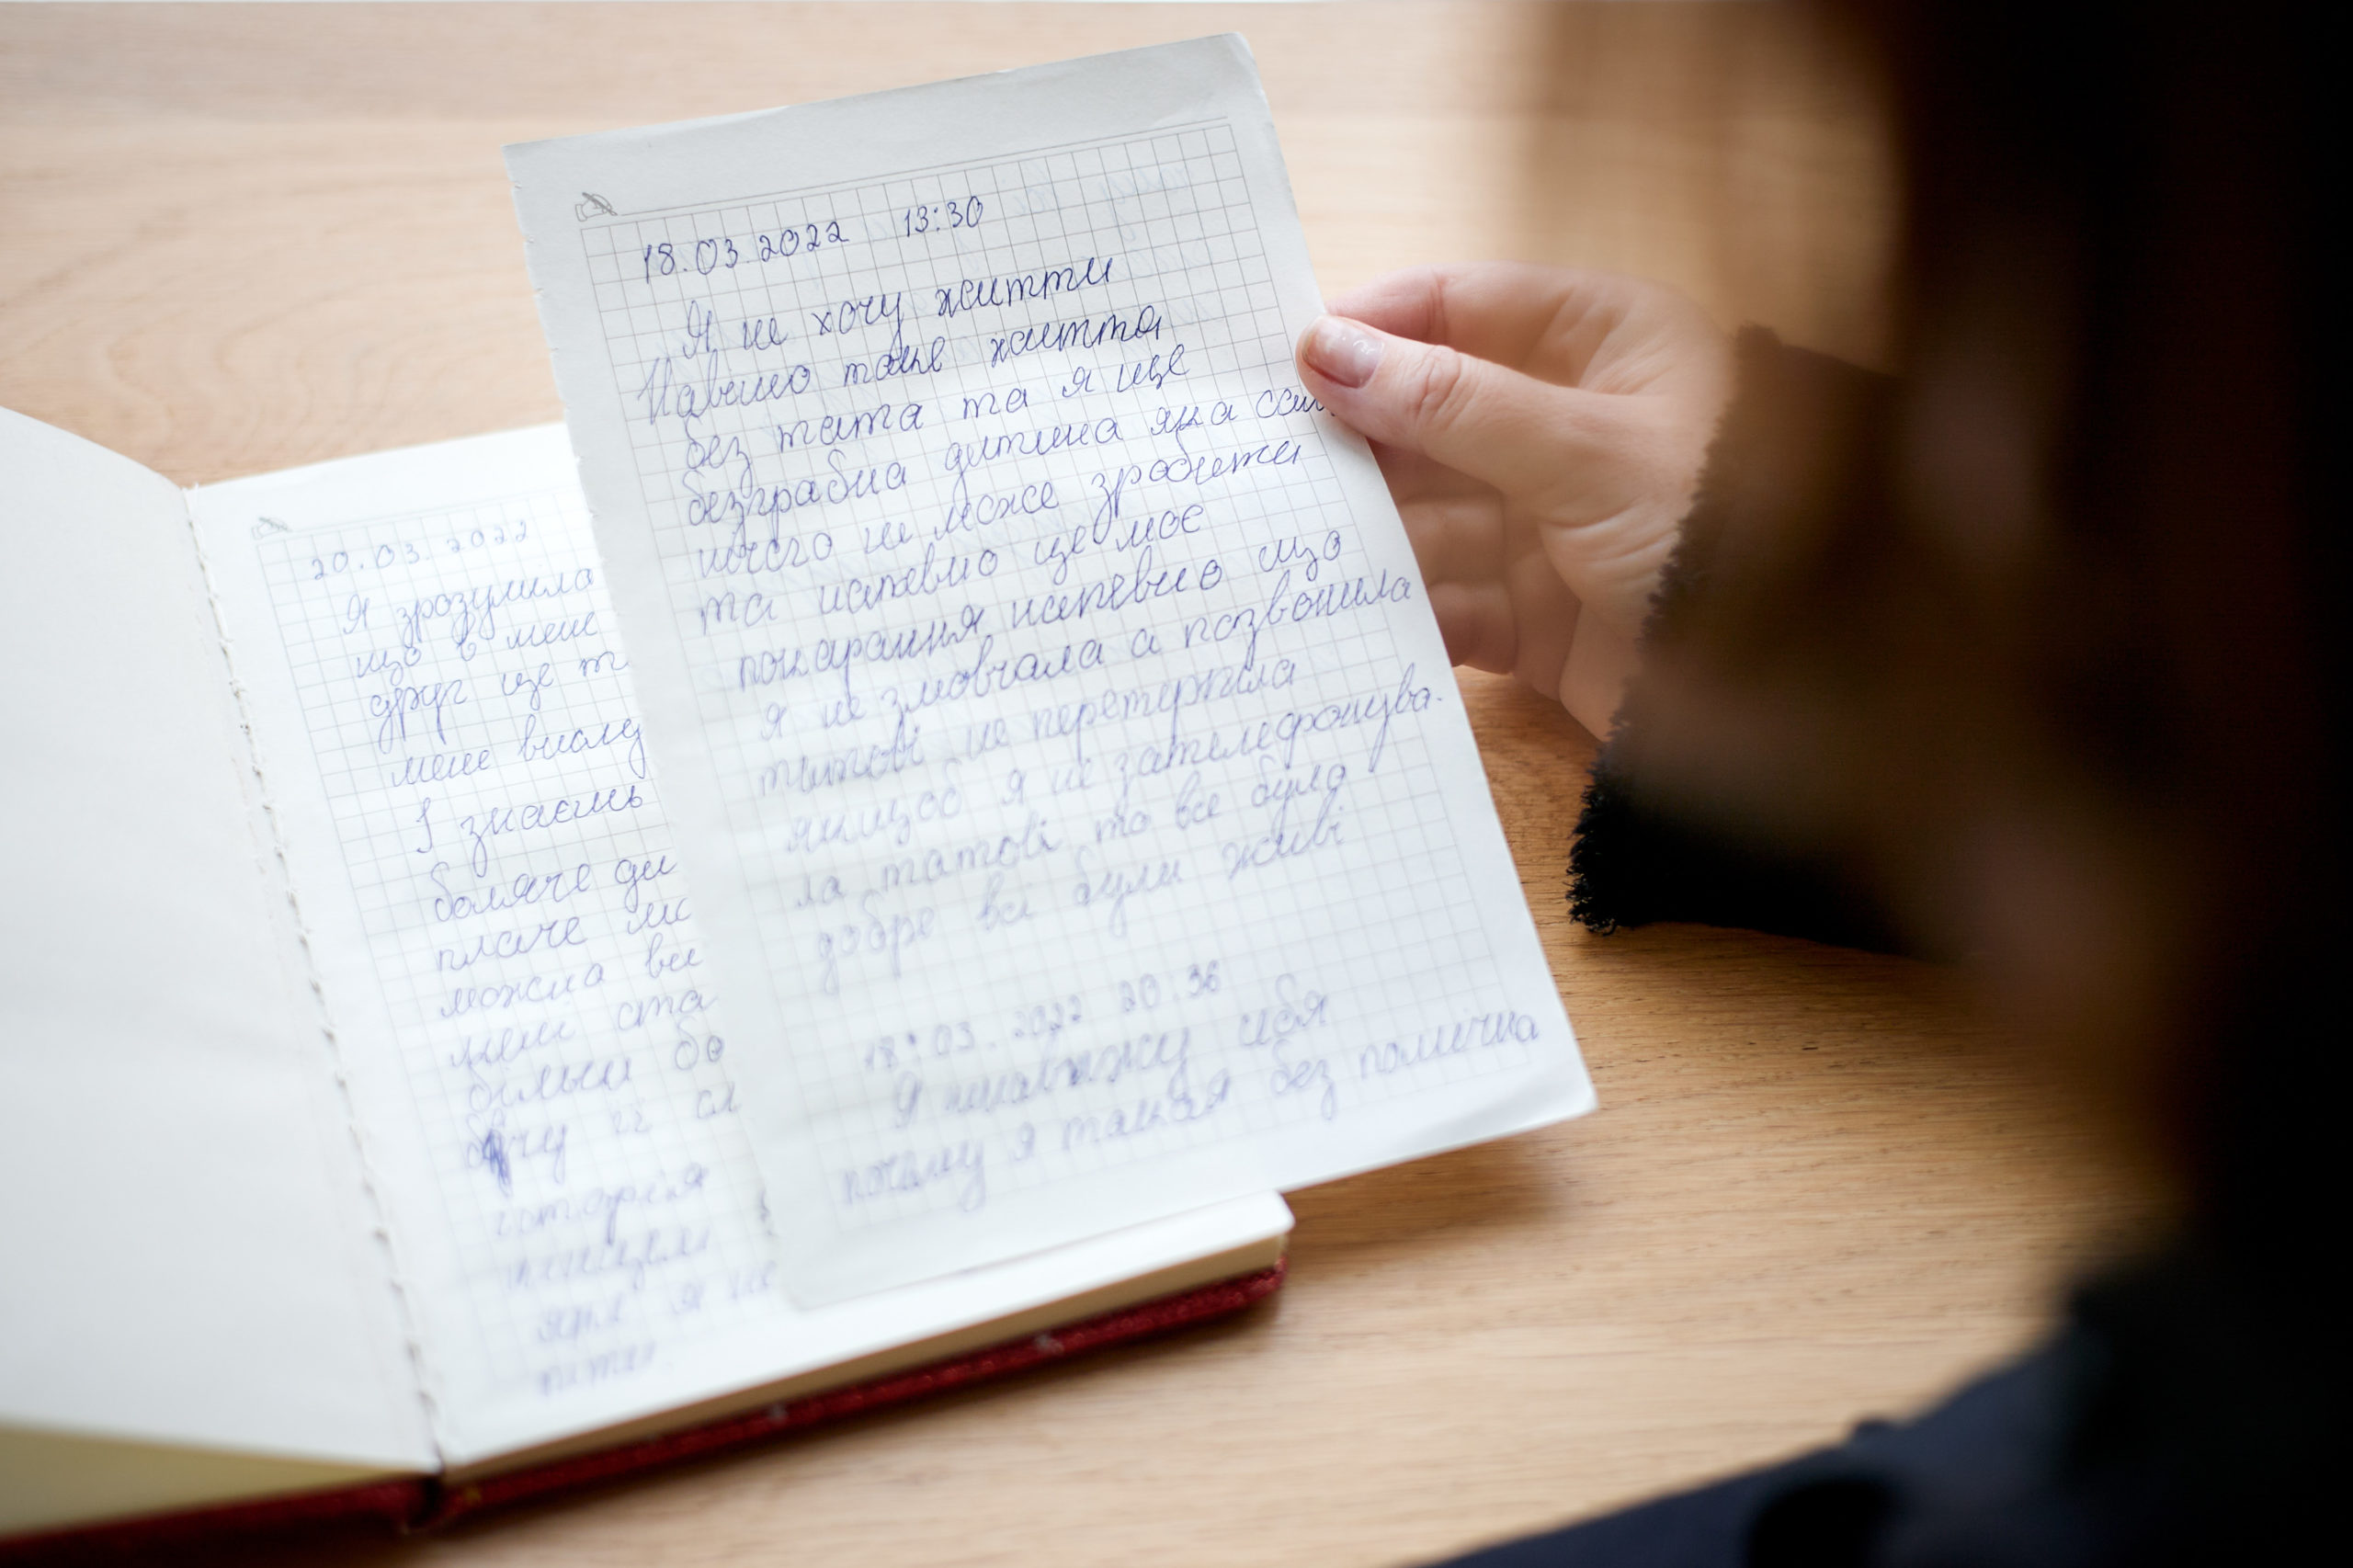 18.03.2022 13:30
Я не хочу житти
Навшо таке життя
без тата та я ще
безграбна дитина яка сам
нічого не може зробити
та напевно це моє
покарання напевно що
я не змовчала а позвонила
татові не перетерпила
якищоб я не зателефонува-
ла татові то все було
добре всі були живі
18.03.2022 20:36
Я ненавижу себя
почему я такая без помічна
20.03.2022
Я зрозуміла
що в мене
друг це т
мене вислу
І знаєшь
боляче ди
плаче мо
можна ви
мені ста
більш бо
бачу її сл
історія
пишем
як я не